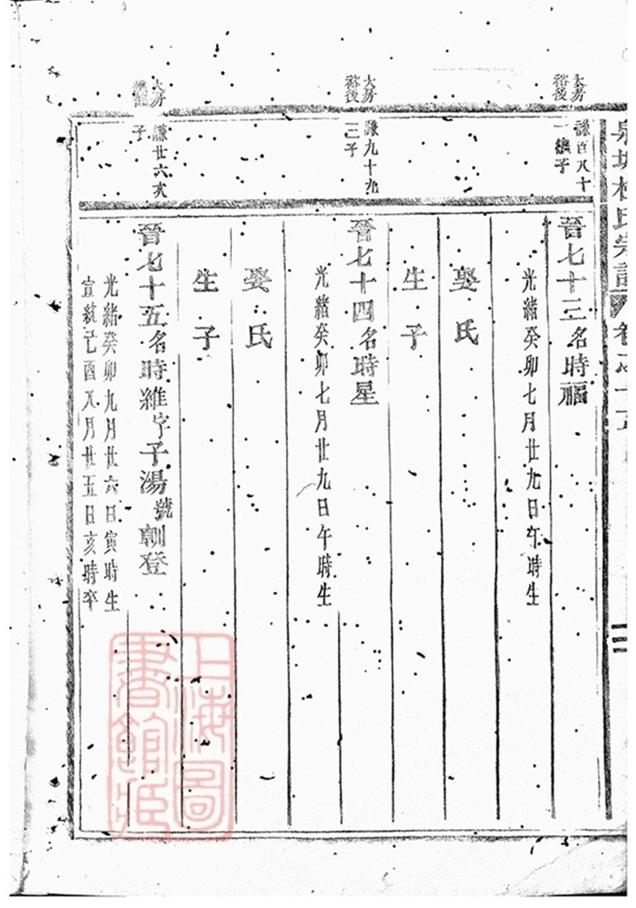 大房
裕後
謙百八十
一繼子
晉七十三名時福
光緒癸卯七月廿九日午時生
娶氏
生子
大房
裕後
謙九十九
三子
晉七十四名時星
光緒癸卯七月廿九日午時生
娶氏
生子
大房
謙廿六次
子
晉七十五名時維字子湯號朝登
光緒癸卯九月廿六日寅時生
宣統己酉八月廿五日亥時卒
上海圖
書館藏